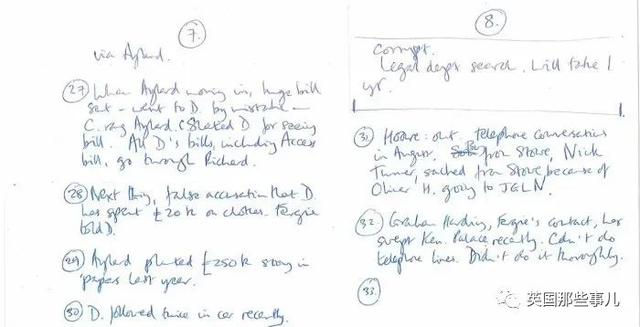 7.
via Aylard.
27 When Aylard moving in, huge bill
sent - went to D. by mistake -
C. rang Aylard. & slated D for seeing
bill. All D's bills, including Access
bill, go through Richard.
28 Next thing, false accusation that D.
has spent £20k on clothes. Fergie
told D.
29 Aylard planted £250k story in
papers last year.
30 D. followed twice in car recently.
8.
corrupt.
Legal dept search. Will take 1
yr.
31 Hoare: out. telephone conversations
in August. from Stowe, Nick
Turner, sacked from Stowe because of
Oliver H. going to JGLN.
32 Graham Harding, Fergie's contact, has
swept Ken. Palace recently. Can't do
telephone lines. Didn't do it thoroughly.
33.
英国那些事儿